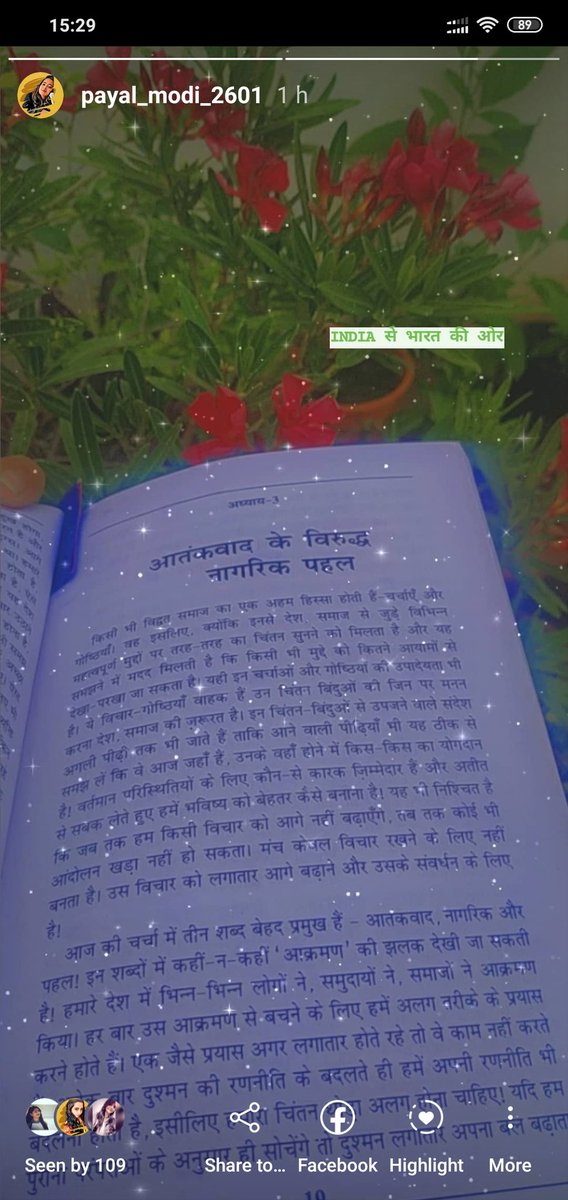 15:29
89
payal_modi_2601 1 h
INDIA से भारत की ओर
अध्याय-3
आतंकवाद के विरुद्ध
नागरिक पहल
किसी भी विद्वत समाज का एक अहम हिस्सा होती हैं-चर्चाएँ और
गोष्ठियाँ। वह इसलिए, क्योंकि इनसे देश, समाज से जुड़े विभिन्न
महत्वपूर्ण मुद्दों पर तरह-तरह का चिंतन सुनने को मिलता है और यह
समझने में मदद मिलती है कि किसी भी मुद्दे को कितने आयामों से
देखा-परखा जा सकता है। यही इन चर्चाओं और गोष्ठियों की उपादेयता भी
है। ये विचार-गोष्ठियाँ वाहक हैं उन चिंतन बिंदुओं की जिन पर मनन
करना देश, समाज की जरूरत है। इन चिंतन-बिंदुओं से उपजने वाले संदेश
अगली पीढ़ी तक भी जाते हैं ताकि आने वाली पीढ़ियाँ भी यह ठीक से
समझ लें कि वे आज जहाँ हैं, उनके वहाँ होने में किस-किस का योगदान
है। वर्तमान परिस्थितियों के लिए कौन-से कारक ज़िम्मेदार हैं और अतीत
से सबक लेते हुए हमें भविष्य को बेहतर कैसे बनाना है। यह भी निश्चित है
कि जब तक हम किसी विचार को आगे नहीं बढ़ाएँगे, तब तक कोई भी
आंदोलन खड़ा नहीं हो सकता। मंच केवल विचार रखने के लिए नहीं
बनता है। उस विचार को लगातार आगे बढ़ाने और उसके संवर्धन के लिए
है!
आज की चर्चा में तीन शब्द बेहद प्रमुख हैं - आतंकवाद, नागरिक और
पहल! इन शब्दों में कहीं-न-कहीं 'आक्रमण' की झलक देखी जा सकती
है। हमारे देश में भिन्न-भिन्न लोगों ने, समुदायों ने, समाजों ने आक्रमण
किया। हर बार उस आक्रमण से बचने के लिए हमें अलग तरीके के प्रयास
करने होते हैं। एक जैसे प्रयास अगर लगातार होते रहे तो वे काम नहीं करते
दुश्मन की रणनीति के बदलते ही हमें अपनी रणनीति भी
है, इसीलिए चिंतन अलग होना चाहिए! यदि हम
के अनुसार ही सोचेंगे तो दुश्मन लगातार अपना बल बढ़ाता
19
Seen by 109
Share to...
Facebook
Highlight
More